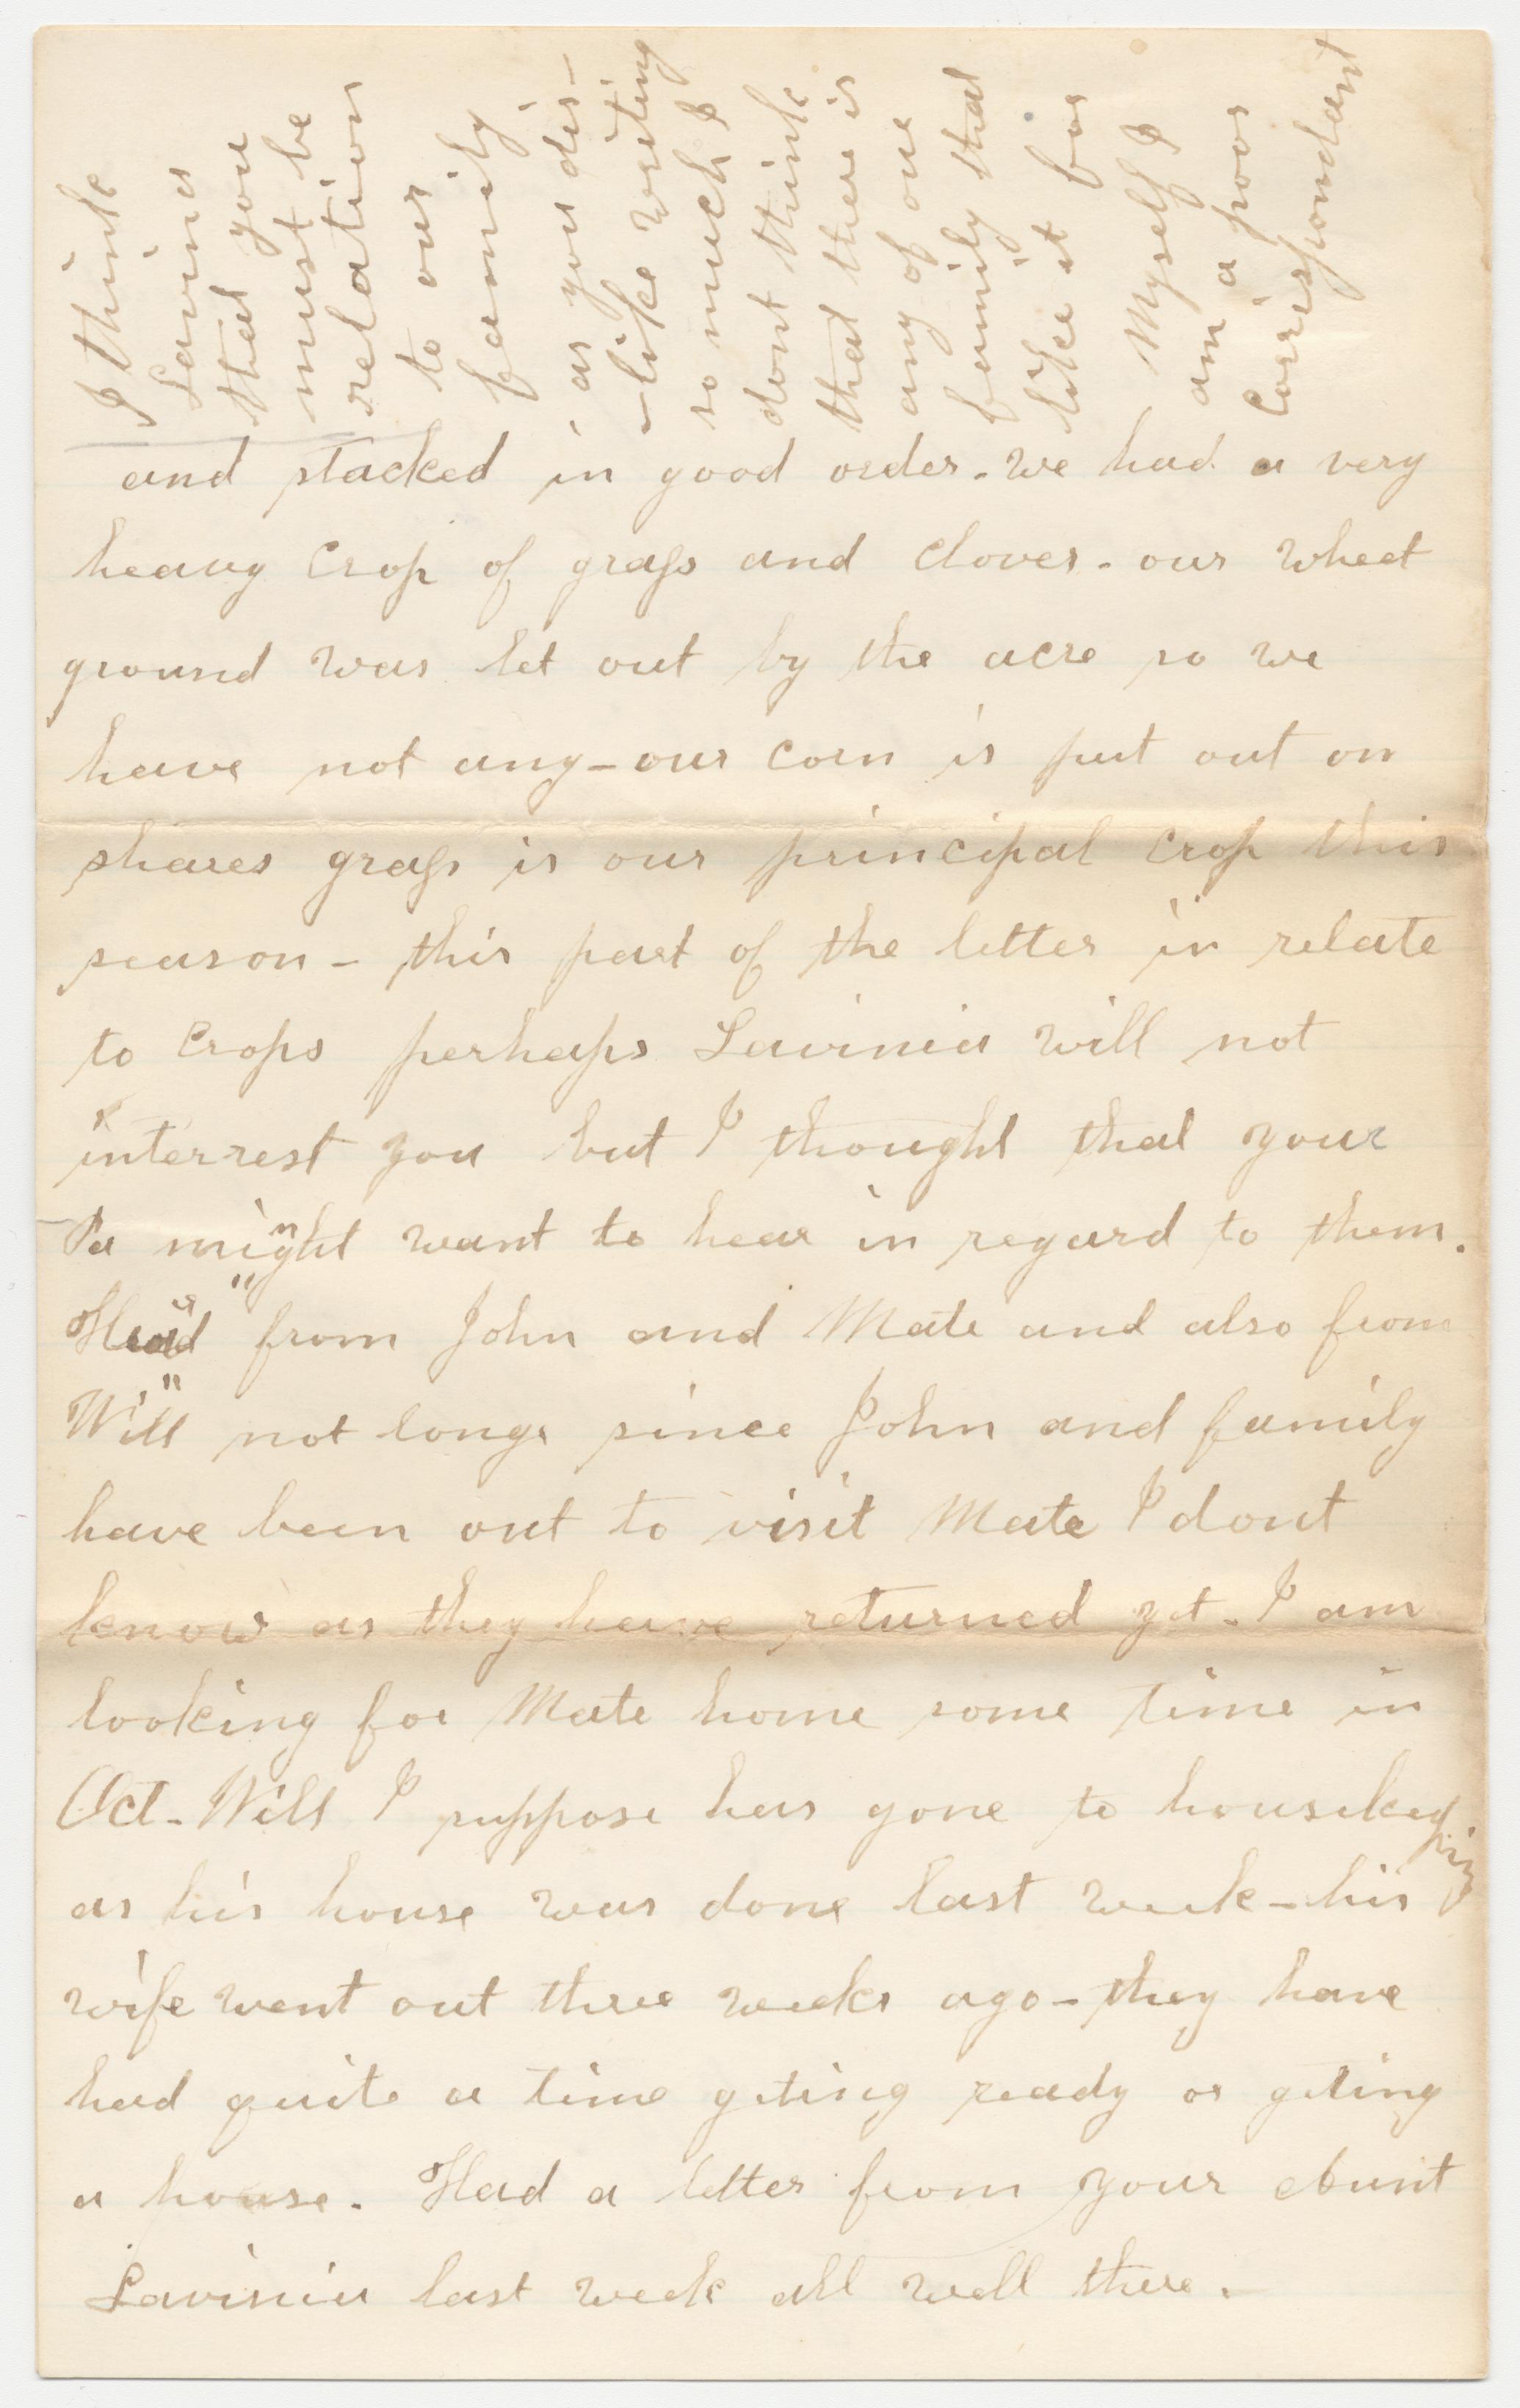 I think
Lavina
that you
must be
relation
to our
family
as you dis-
-like writing
so much I
dont think
that there is
any of our
family that
like it for
Myself I
am a poor
Corrispondant
and stacked in good order. we had a very
heavy Crop of grass and clover. our wheat
ground was let out by the acre so we
have not any - our corn is put out on
shares grass is our principal crop this
season - this part of the letter in relate
to Crops perhaps Lavinia will not
interrest you but I thought that your
Pa might want to hear in regard to them.
Heard from John and Mate and also from
Will not long since John and family
have been out to visit Mate I dont
know as they have returned yet. I am
looking for Mate home some time in
Oct - Will I suppose has gone to housekeeping
as his house was done last week - his
wife went out three weeks ago - they have
had quite a time geting ready or geting
a house. Had a letter from your Aunt
Lavinia last week all well there.